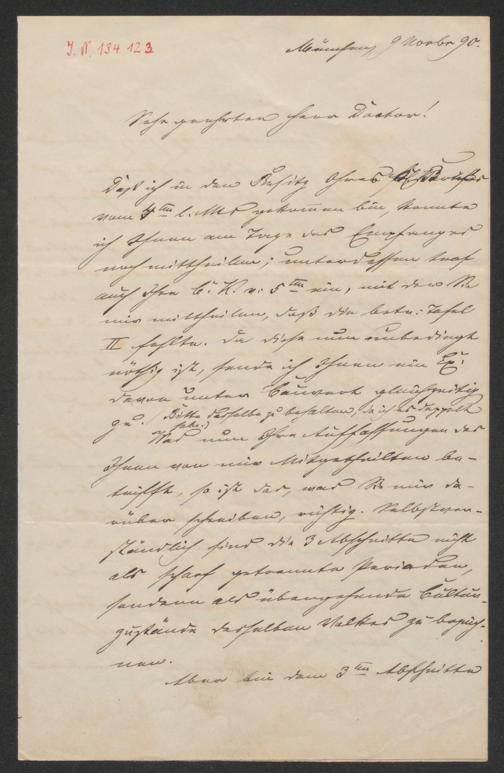 J. N. 134.123
München, 9 Novbr 90.
Sehr geehrter Herr Doctor!
Daß ich in den Besitz Ihres
vom 4ten l. Mts gekommen bin, konnte
ich Ihnen am Tage des Empfanges
noch mittheilen; unterdessen traf
auch Ihre C. K. v. 5ten ein, mit der Sie
mir mittheilen, daß die betr: Tafel
II fehlte. Da diese nun unbedingt
nöthig ist, sende ich Ihnen ein Ex:
davon unter Couvert gleichzeitig
zu. (Bitte dasselbe zu behalten, da ich es doppelt
habe.)
Was nun Ihre Auffassungen des
Ihnen von mir Mitgetheilten be-
trifft, so ist das, was Sie mir da-
rüber schreiben, richtig. Selbstver-
ständlich sind die 3 Abschnitte nicht
als scharf getrennte Perioden,
sondern als übergehende Cultur-
zustände desselben Volkes zu bezeich-
nen.
Aber bei dem 3ten Abschnitte